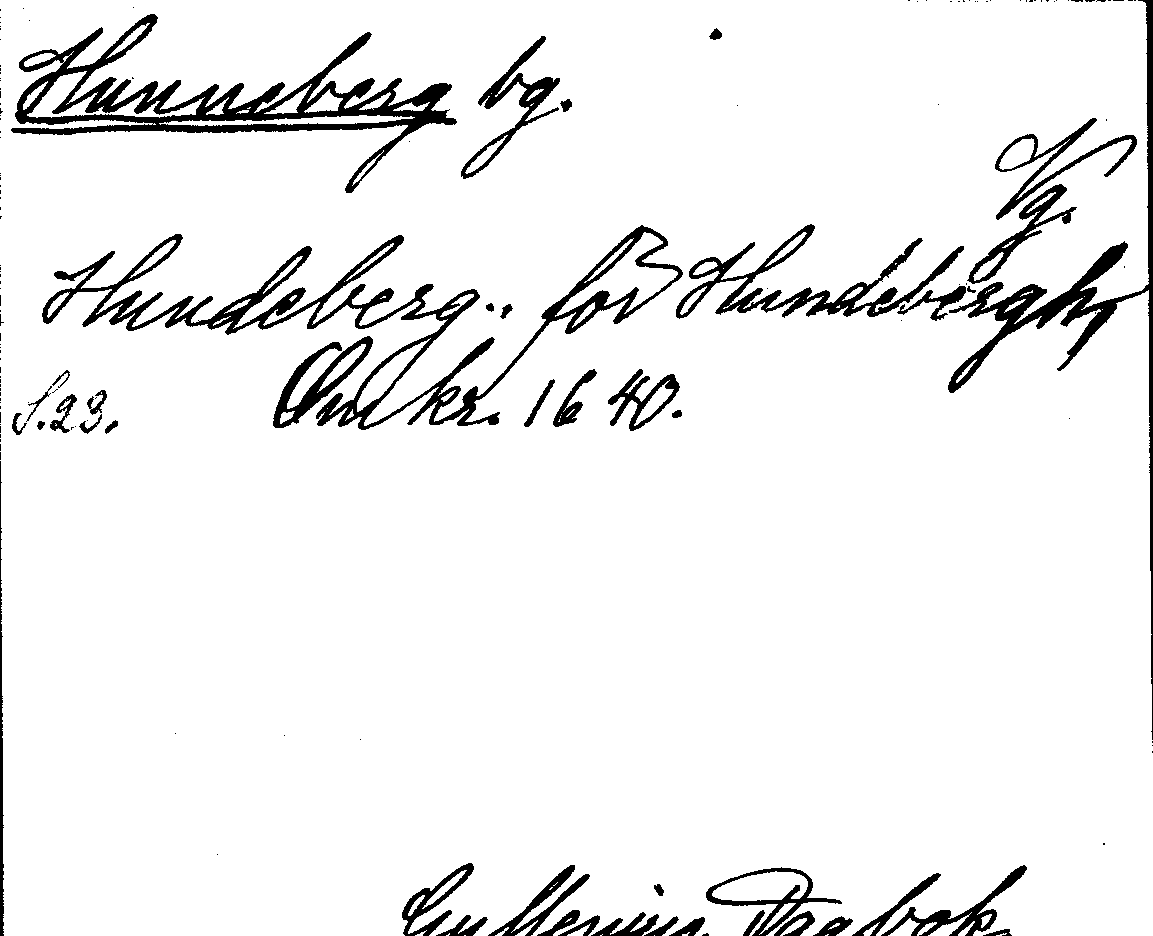 Hunneberg bg.
Vg.
Hundeberg.. for Hundebergh,
S.23. Omkr. 1640.
Dagbok